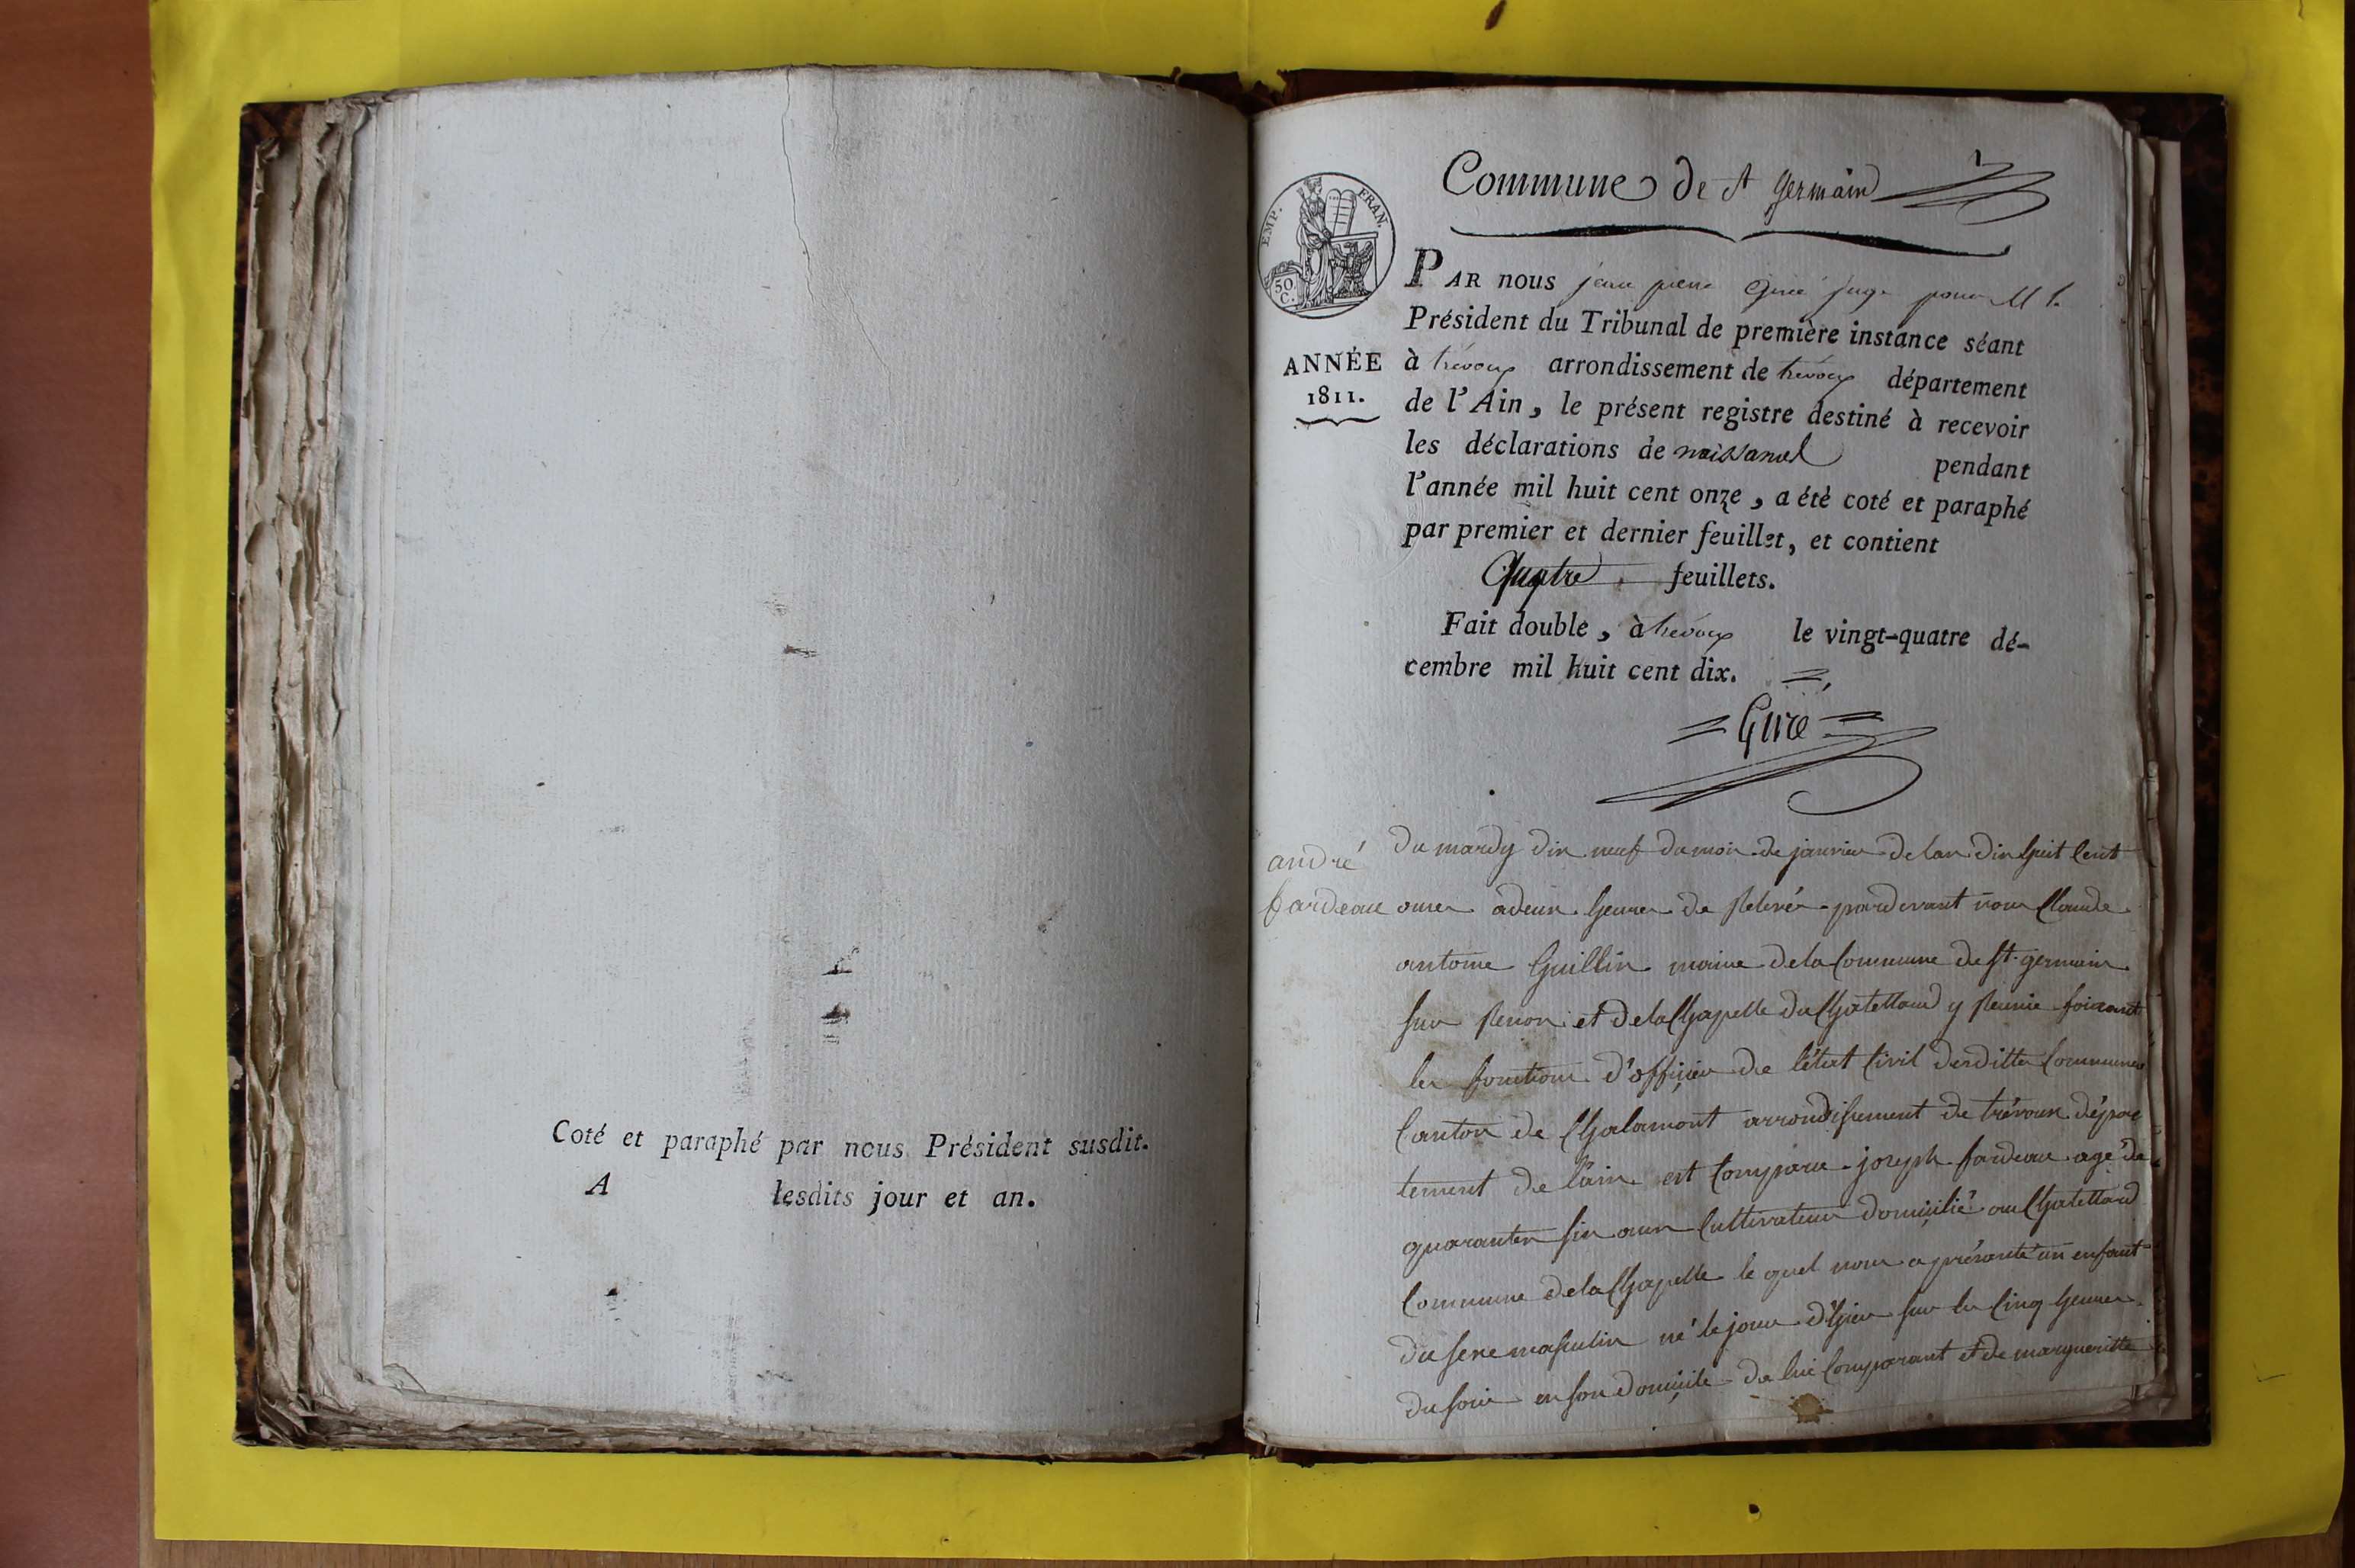 Coté et paraphé par nous Président susdit.
A lesdits jour et an.
Commune de St Germain
EMP. FRAN.
50 C.
ANNÉE
1811.
PAR nous jean pierre Giré juge pour M le
Président du Tribunal de première instance séant
à trévoux arrondissement de trévoux département
de l'Ain, le présent registre destiné à recevoir
les déclarations de naissance pendant
l'année mil huit cent onze, a été coté et paraphé
par premier et dernier feuillet, et contient
Quatre feuillets.
Fait double, à trévoux le vingt-quatre dé-
cembre mil huit cent dix.
andré
fardeau
du mardy dix neuf du mois de janvier de lan dix huit Cent
onze a deux heures de relevée pardevant nous Claude
antoine Guillin maire de la Commune de st germain
sur renon et de la Chapelle du Chatellard y réunie faisant
les fonctions d'officier de l'état Civil desdittes Communes
Canton de Chalamont arrondissement de trévoux dépar
tement de l'ain est Comparu joseph fardeau agé de
quarante six ans Cultivateur domicilié au Chatellard
Commune de la Chapelle le quel nous a présanté un enfant
du sexe masculin né le jour d'hier sur les Cinq heures
du soir en son domicile de lui Comparant et de margueritte